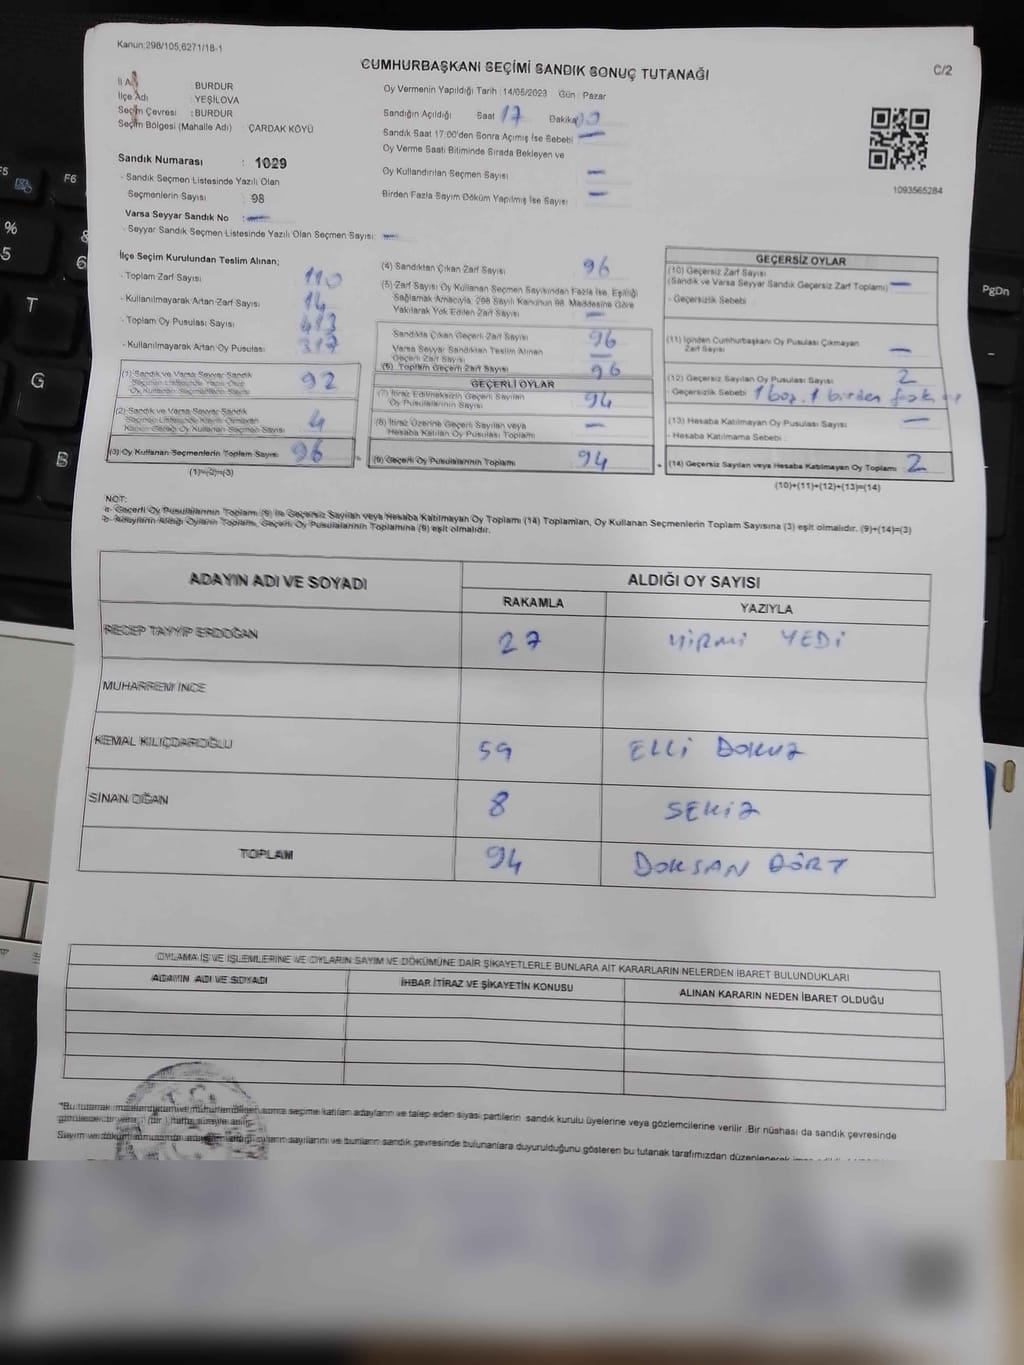 Kanun:298/105,6271/18-1
CUMHURBAŞKANI SEÇİMİ SANDIK SONUÇ TUTANAĞI
C/2
İl Adı BURDUR
İlçe Adı YEŞİLOVA
Seçim Çevresi : BURDUR
Seçim Bölgesi (Mahalle Adı) : ÇARDAK KÖYÜ
Oy Vermenin Yapıldığı Tarih : 14/05/2023 Gün : Pazar
Sandığın Açıldığı Saat 17 Dakika 00
Sandık Saat 17:00'den Sonra Açımış İse Sebebi —
Oy Verme Saati Bitiminde Sırada Bekleyen ve
Oy Kullandırılan Seçmen Sayısı —
Birden Fazla Sayım Döküm Yapılmış İse Sayısı —
1093565284
Sandık Numarası : 1029
- Sandık Seçmen Listesinde Yazılı Olan
Seçmenlerin Sayısı : 98
Varsa Seyyar Sandık No : —
- Seyyar Sandık Seçmen Listesinde Yazılı Olan Seçmen Sayısı: —
İlçe Seçim Kurulundan Teslim Alınan;
- Toplam Zarf Sayısı 110
- Kullanılmayarak Artan Zarf Sayısı 14
- Toplam Oy Pusulası Sayısı 413
- Kullanılmayarak Artan Oy Pusulası 317
(1) Sandık ve Varsa Seyyar Sandık
Seçmen Listesinde Yazılı Olan
Oy Kullanan Seçmenlerin Sayısı 92
(2) Sandık ve Varsa Seyyar Sandık
Seçmen Listesinde Kayıtlı Olmayan
Kanun Gereği Oy Kullanan Seçmen Sayısı 4
(3) Oy Kullanan Seçmenlerin Toplam Sayısı 96
(1)+(2)=(3)
(4) Sandıktan Çıkan Zarf Sayısı 96
(5) Zarf Sayısı Oy Kullanan Seçmen Sayısından Fazla İse, Eşitliği
Sağlamak Amacıyla, 298 Sayılı Kanunun 98. Maddesine Göre
Yakılarak Yok Edilen Zarf Sayısı —
Sandıkta Çıkan Geçerli Zarf Sayısı 96
Varsa Seyyar Sandıktan Teslim Alınan
Geçerli Zarf Sayısı —
(6) Toplam Geçerli Zarf Sayısı 96
GEÇERLİ OYLAR
(7) İtiraz Edilmeksizin Geçerli Sayılan
Oy Pusulalarının Sayısı 94
(8) İtiraz Üzerine Geçerli Sayılan veya
Hesaba Katılan Oy Pusulası Toplamı —
(9) Geçerli Oy Pusulalarının Toplamı 94
GEÇERSİZ OYLAR
(10) Geçersiz Zarf Sayısı
(Sandık ve Varsa Seyyar Sandık Geçersiz Zarf Toplamı) —
- Geçersizlik Sebebi
(11) İçinden Cumhurbaşkanı Oy Pusulası Çıkmayan
Zarf Sayısı —
(12) Geçersiz Sayılan Oy Pusulası Sayısı 2
- Geçersizlik Sebebi 1 boş, 1 birden fazla oy
(13) Hesaba Katılmayan Oy Pusulası Sayısı —
- Hesaba Katılmama Sebebi :
(14) Geçersiz Sayılan veya Hesaba Katılmayan Oy Toplamı 2
(10)+(11)+(12)+(13)=(14)
NOT:
a- Geçerli Oy Pusulalarının Toplamı (9) ile Geçersiz Sayılan veya Hesaba Katılmayan Oy Toplamı (14) Toplamları, Oy Kullanan Seçmenlerin Toplam Sayısına (3) eşit olmalıdır. (9)+(14)=(3)
b- Adayların Aldığı Oyların Toplamı, Geçerli Oy Pusulalarının Toplamına (9) eşit olmalıdır.
ADAYIN ADI VE SOYADI ALDIĞI OY SAYISI
RAKAMLA YAZIYLA
RECEP TAYYİP ERDOĞAN 27 YİRMİ YEDİ
MUHARREM İNCE
KEMAL KILIÇDAROĞLU 59 ELLİ DOKUZ
SİNAN OĞAN 8 SEKİZ
TOPLAM 94 DOKSAN DÖRT
OYLAMA İŞ VE İŞLEMLERİNE VE OYLARIN SAYIM VE DÖKÜMÜNE DAİR ŞİKAYETLERLE BUNLARA AİT KARARLARIN NELERDEN İBARET BULUNDUKLARI
ADAYIN ADI VE SOYADI İHBAR İTİRAZ VE ŞİKAYETİN KONUSU ALINAN KARARIN NEDEN İBARET OLDUĞU
*Bu tutanak seçime katılan adayların ve talep eden siyasi partilerin sandık kurulu üyelerine veya gözlemcilerine verilir. Bir nüshası da sandık çevresinde
Sayım ve döküm oyların sayılarını ve bunların sandık çevresinde bulunanlara duyurulduğunu gösteren bu tutanak tarafımızdan düzenlenerek